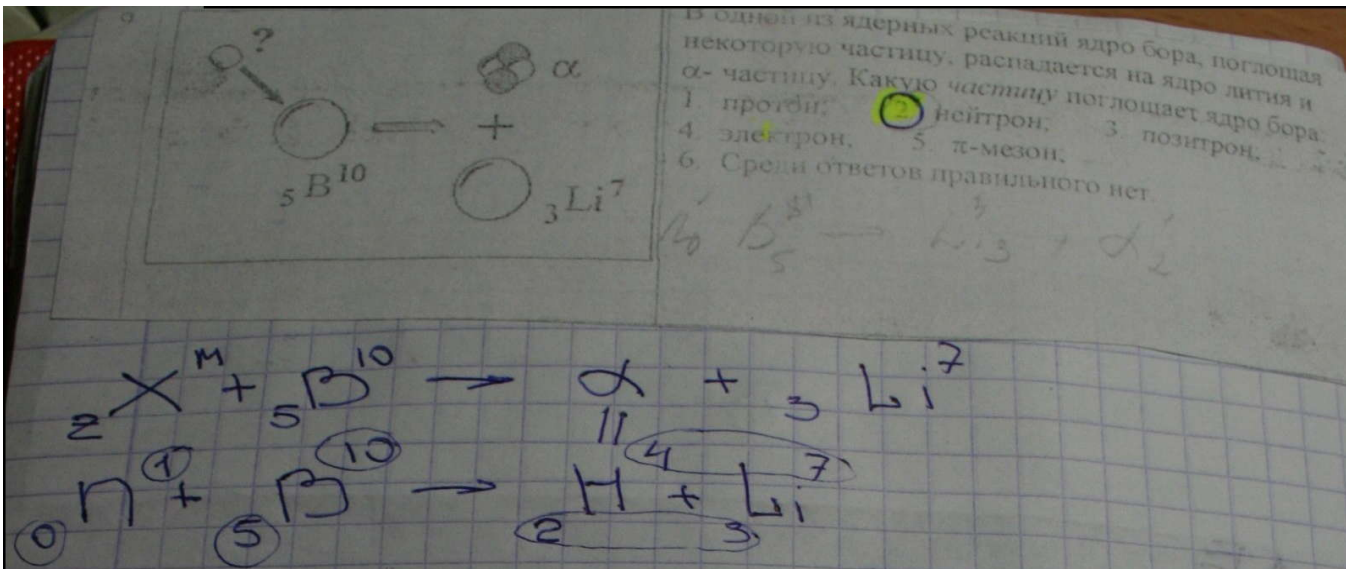 ?
α
+
₅B¹⁰
₃Li⁷
В одной из ядерных реакций ядро бора, поглощая
некоторую частицу, распадается на ядро лития и
α- частицу. Какую частицу поглощает ядро бора:
1. протон; 2 нейтрон; 3. позитрон,
4. электрон, 5. π-мезон;
6. Среди ответов правильного нет.
zXᴹ + ₅B¹⁰ → α + ₃Li⁷
||
₀n¹ + ₅B¹⁰ → ₂H⁴ + ₃Li⁷